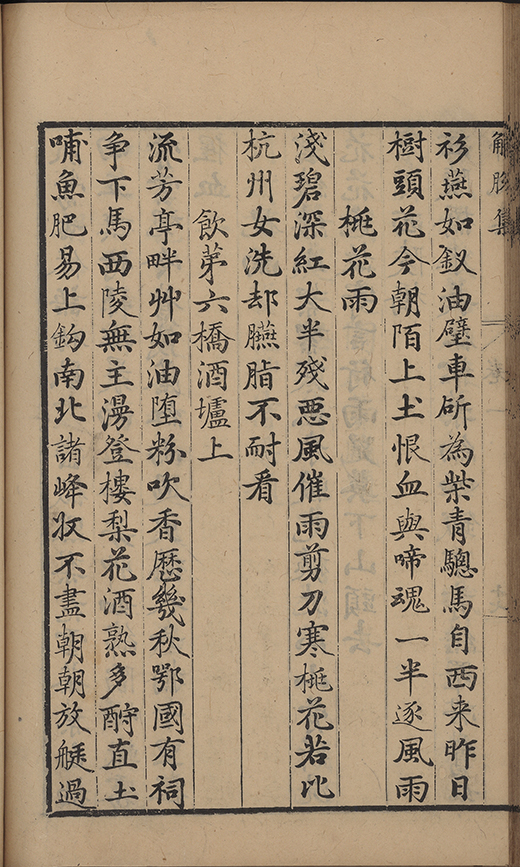 解脫集
衫燕如釵油壁車斫為柴青驄馬自西来昨日
樹頭花今朝陌上土恨血與啼魂一半逐風雨
桃花雨
淺碧深紅大半殘惡風催雨剪刀寒桃花若比
杭州女洗却臙脂不耐看
飲苐六橋酒壚上
流芳亭畔艸如油堕粉吹香歷幾秋鄂國有祠
争下馬西陵無主漫登樓梨花酒熟多酹直土
哺魚肥易上鈎南北諸峰収不盡朝朝放艇過